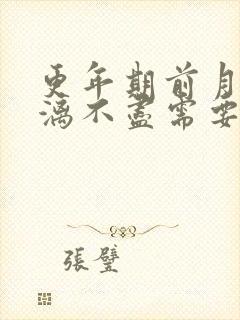 更年期前月
漓不盡需要
張璧